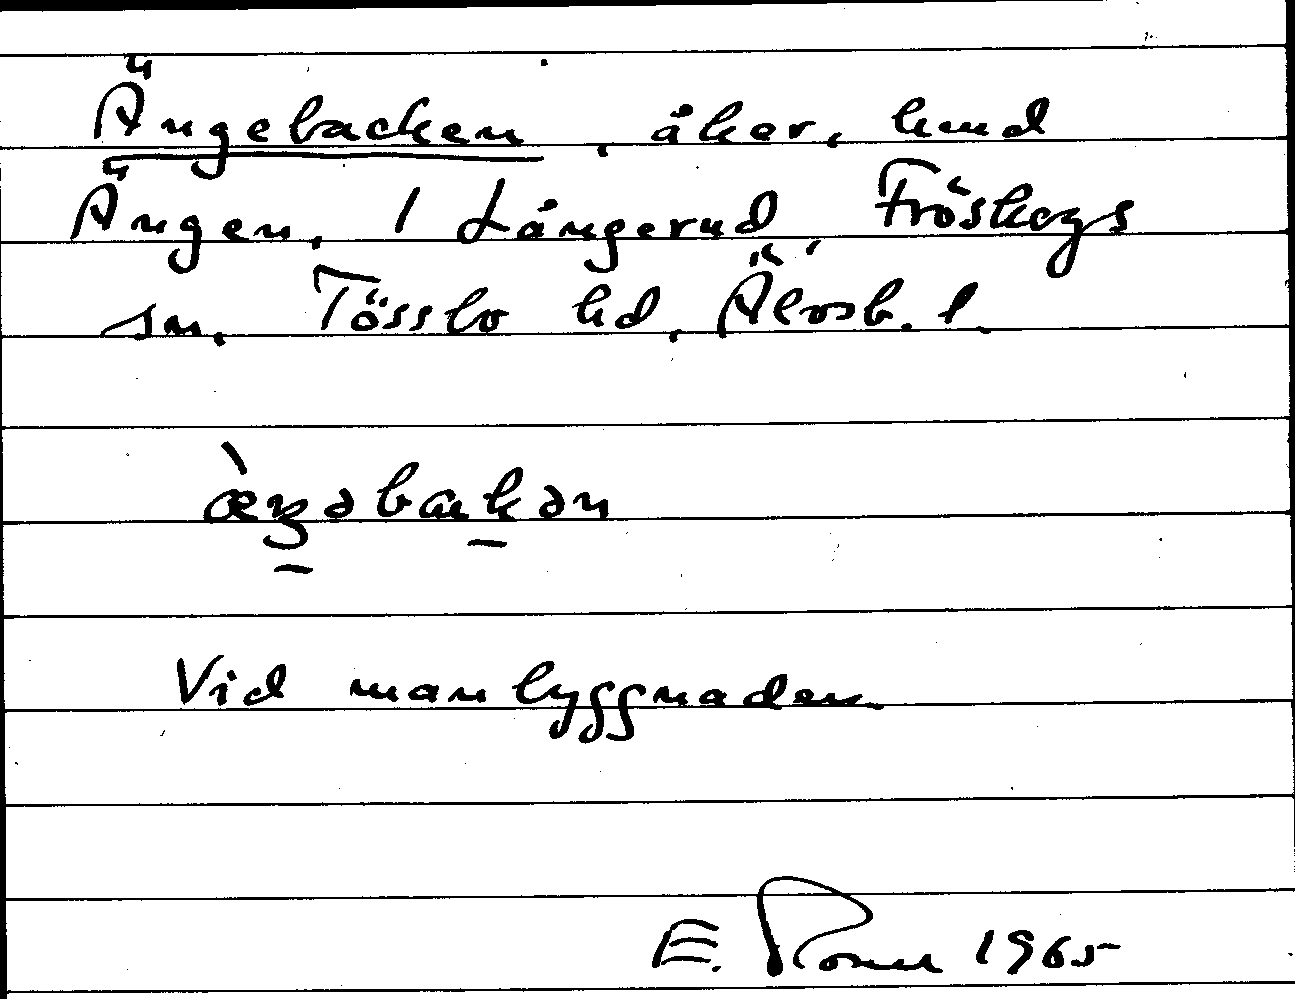 Ängebacken, åker, hmd
Ängen, 1 Långerud, Fröskogs
sn, Tössbo hd, Älvsb. l.
æ̀ŋəbakən
Vid manbyggnaden.
E. 1965